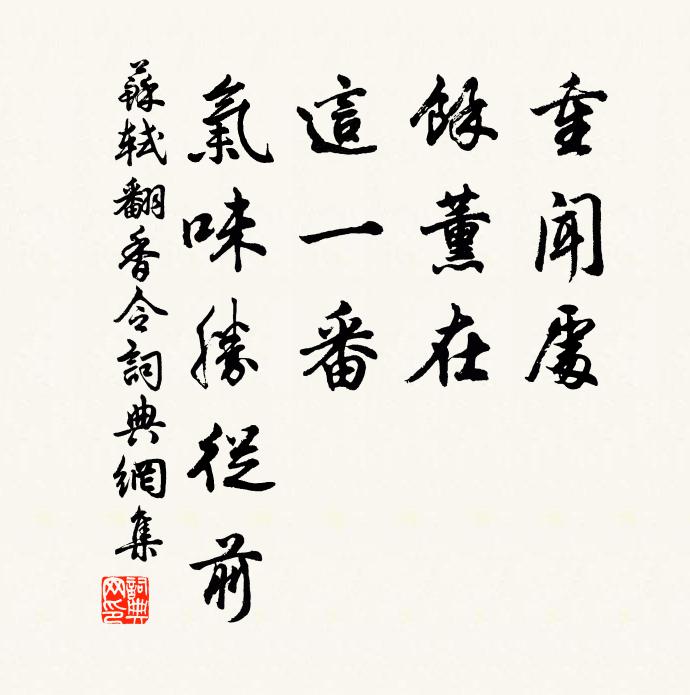 重聞處
餘薰在
這一番
氣味勝從前
蘇軾翻香令詞典網集
詞典网印